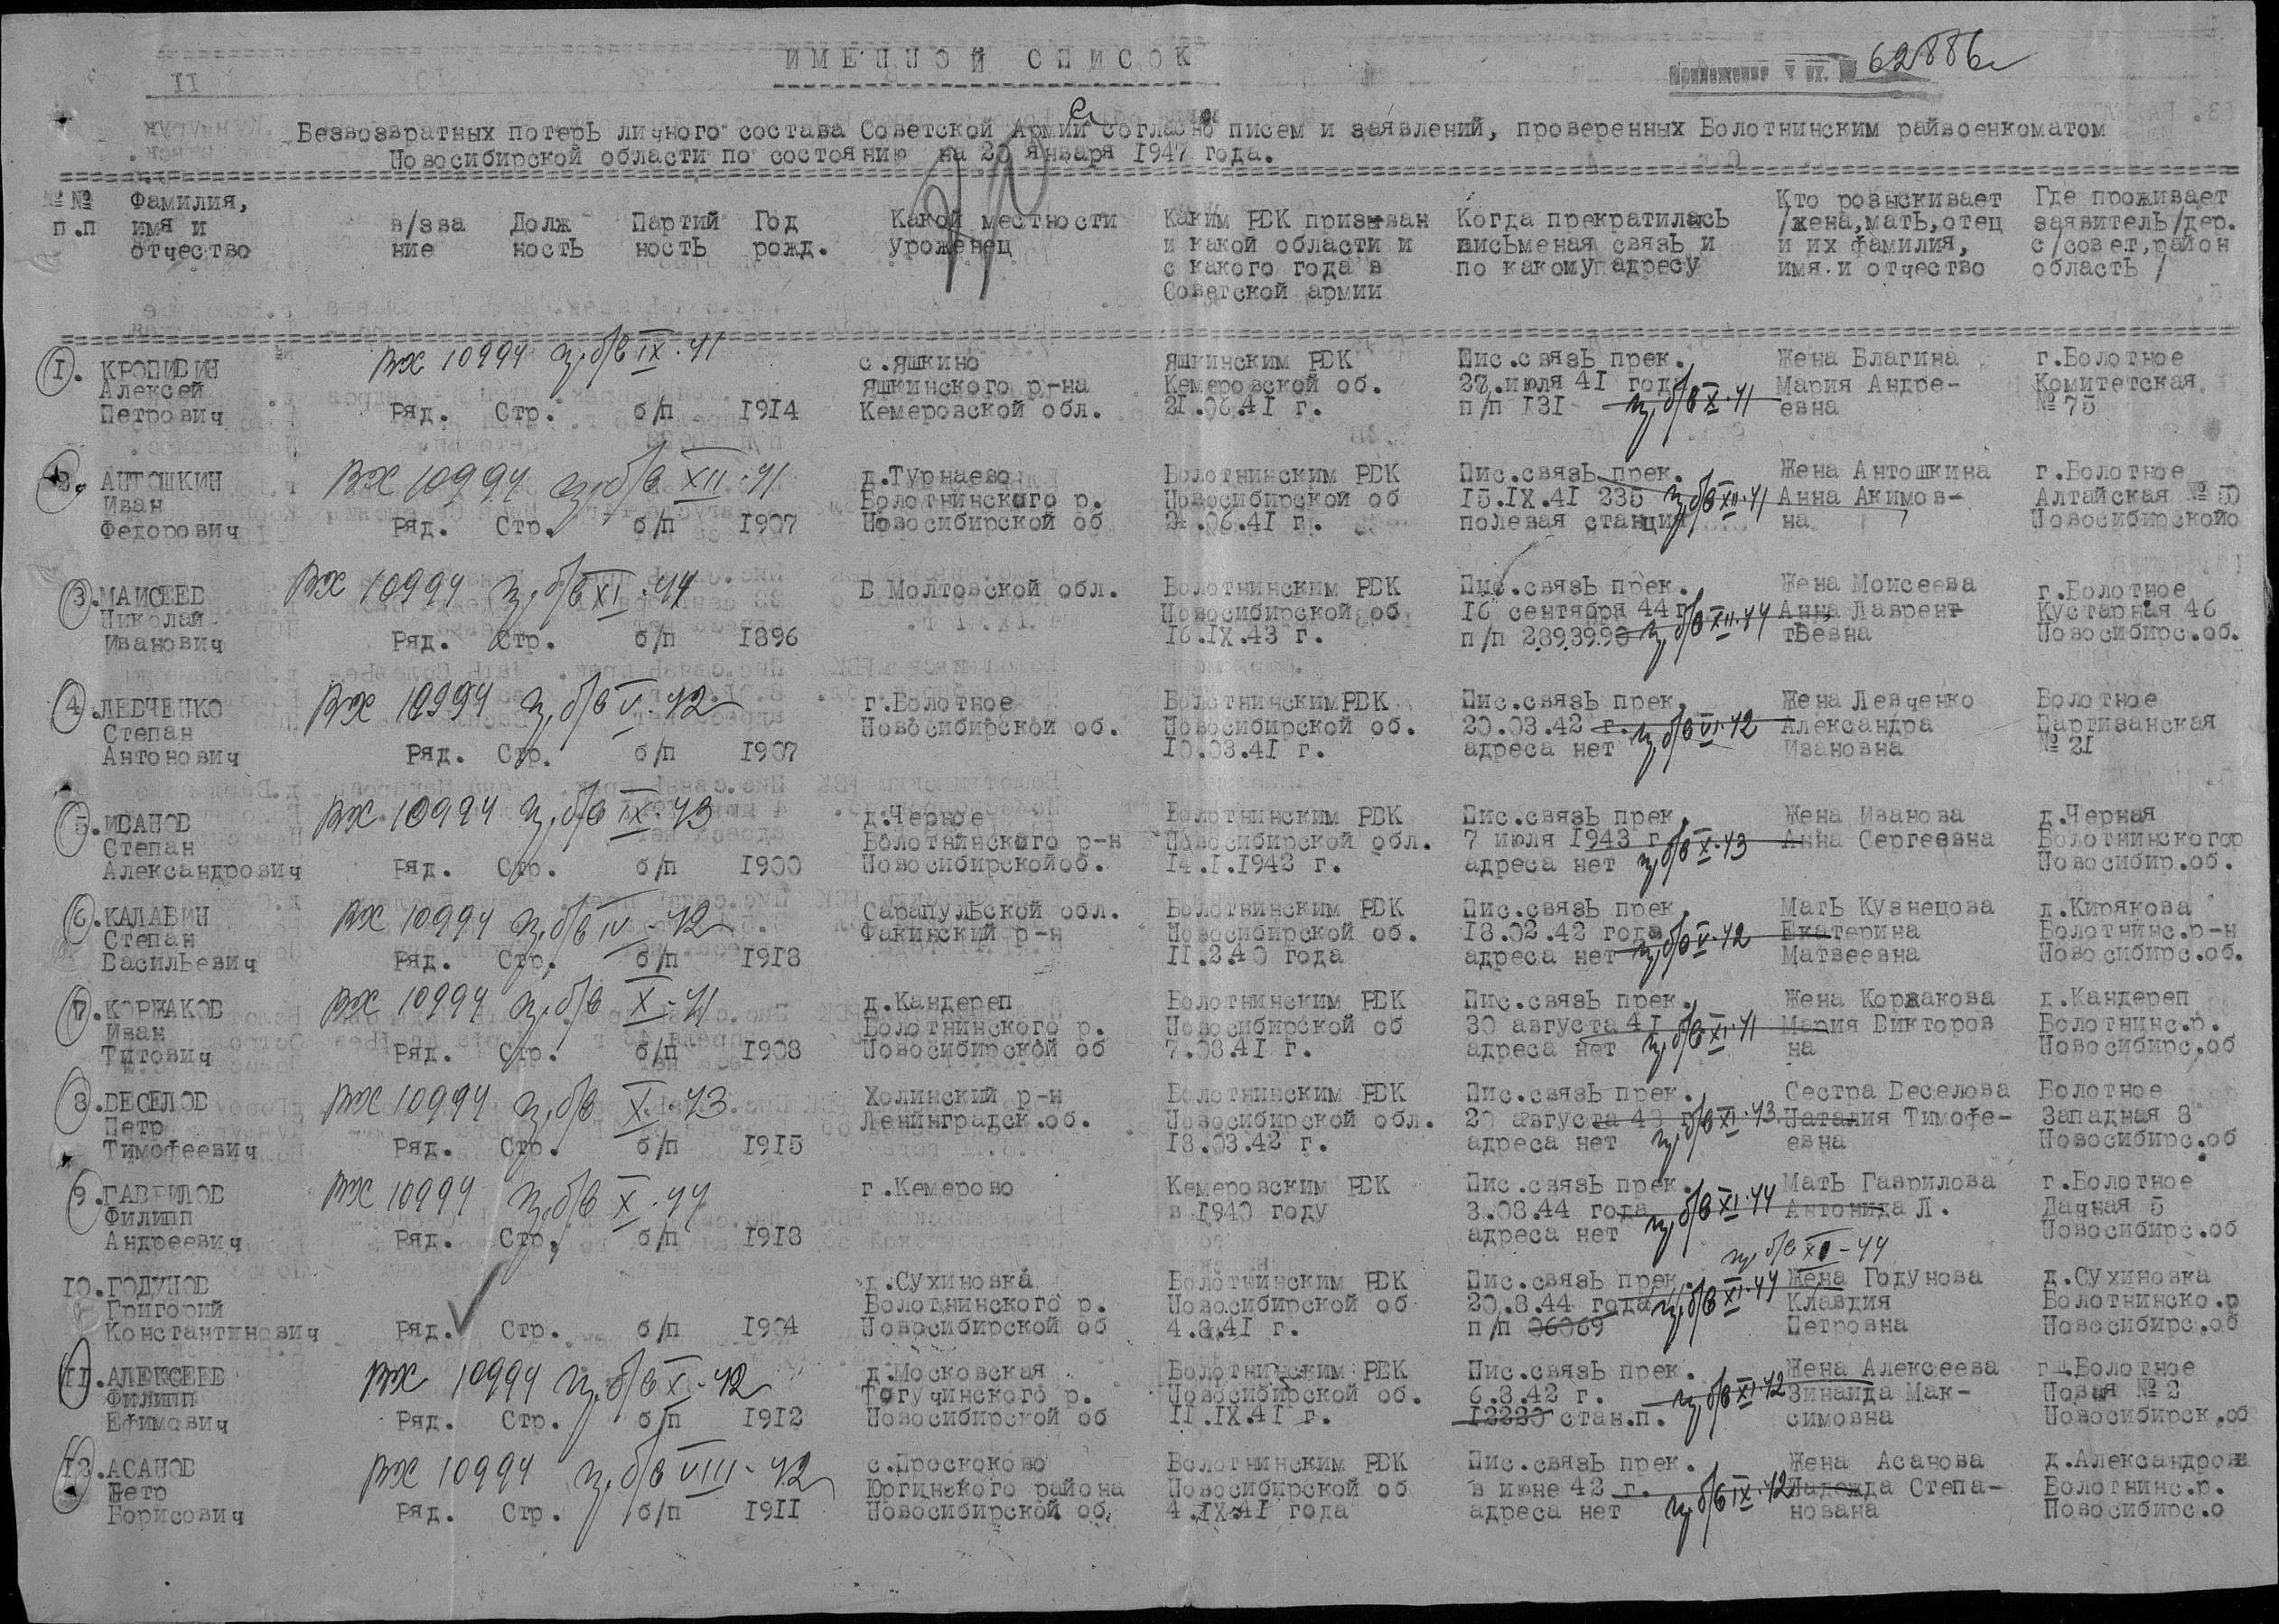 ИМЕННОЙ СПИСОК
Приложение к вх. № 62886с
Безвозвратных потерь личного состава Советской Армии согласно писем и заявлений, проверенных Болотнинским райвоенкоматом
Новосибирской области по состоянию на 20 января 1947 года.
№№ п.п
Фамилия, имя и отчество
в/зва ние
Долж ность
Партий ность
Год рожд.
Какой местности уроженец
Каким РВК призван и какой области и с какого года в Советской армии
Когда прекратилась письменая связь и по какому адресу
Кто розыскивает /жена,мать,отец и их фамилия, имя и отчество
Где проживает заявитель/дер. с/совет,район область/
1. КРОПИВИН вх 10994 п/б/в IX-41 с.Яшкино Яшкинским РВК Пис.связь прек. Жена Благина г.Болотное
Алексей Яшкинского р-на Кемеровской об. 22.июля 41 года Мария Андре- Комитетская
Петрович Ряд. Стр. б/п 1914 Кемеровской обл. 21.06.41 г. п/п 131 п/б/в X-41 евна № 75
2. АНТОШКИН вх 10994 п/б/в XII-41 д.Турнаево Болотнинским РВК Пис.связь прек. Жена Антошкина г.Болотное
Иван Болотнинского р. Новосибирской об 15.IX.41 235 п/б/в XII-41 Анна Акимов- Алтайская № 50
Федорович Ряд. Стр. б/п 1907 Новосибирской об 24.06.41 г. полевая станция на Новосибирскойо
3.МАИСЕЕВ вх 10994 п/б/в XI-44 В Молтовской обл. Болотнинским РВК Пис.связь прек. Жена Моисеева г.Болотное
Николай Новосибирской об 16 сентября 44 г п/б/в XII-44 Анна Лаврент Кустарная 46
Иванович Ряд. Стр. б/п 1896 16.IX.43 г. п/п 2893993 тьевна Новосибирс.об.
4.ЛЕВЧЕНКО вх 10994 п/б/в V-42 г.Болотное БолотнинскимРВК Пис.связь прек. Жена Левченко Болотное
Степан Новосибирской об. Новосибирской об. 20.03.42 г. п/б/в VI-42 Александра Партизанская
Антонович Ряд. Стр. б/п 1907 10.03.41 г. адреса нет Ивановна № 21
5.ИВАНОВ вх 10994 п/б/в IX-43 д.Черное Болотнинским РВК Пис.связь прек. Жена Иванова д.Черная
Степан Болотнинского р-н Новосибирской обл. 7 июля 1943 г Анна Сергеевна Болотнинскогор
Александрович Ряд. Стр. б/п 1900 Новосибирскойоб. 14.1.1942 г. адреса нет п/б/в X-43 Новосибир.об.
6.КАЛАБИН вх 10994 п/б/в IV-42 Сарапульской обл. Болотнинским РВК Пис.связь прек. Мать Кузнецова д.Кирякова
Степан Факинский р-н Новосибирской об. 18.02.42 года Екатерина Болотнинс.р-н
Васильевич Ряд. Стр. б/п 1918 11.2.40 года адреса нет п/б/в V-42 Матвеевна Новосибирс.об.
7.КОРЖАКОВ вх 10994 п/б/в X-41 д.Кандереп Болотнинским РВК Пис.связь прек. Жена Коржакова д.Кандереп
Иван Болотнинского р. Новосибирской об 30 августа 41 Мария Викторов Болотнинс.р.
Титович Ряд. Стр. б/п 1908 Новосибирской об 7.08.41 г. адреса нет п/б/в XI-41 на Новосибирс.об
8.ВЕСЕЛОВ вх 10994 п/б/в X-43 Холинский р-н Болотнинским РВК Пис.связь прек. Сестра Веселова Болотное
Петр Ленинградск.об. Новосибирской обл. 20 августа 43 г п/б/в XI-43 Наталия Тимофе- Западная 8
Тимофеевич Ряд. Стр. б/п 1915 18.03.42 г. адреса нет евна Новосибирс.об
9.ГАВРИЛОВ вх 10994 п/б/в X-44 г.Кемерово Кемеровским РВК Пис.связь прек. Мать Гаврилова г.Болотное
Филипп в 1940 году 3.08.44 года п/б/в XI-44 Антонида Л. Дачная 5
Андреевич Ряд. Стр. б/п 1918 адреса нет Новосибирс.об
п/б/в XI-44
10.ГОДУНОВ д.Сухиновка Болотнинским РВК Пис.связь прек. Жена Годунова д.Сухиновка
Григорий Болотнинского р. Новосибирской об 20.8.44 года п/б/в XI-44 Клавдия Болотнинско.р
Константинович Ряд. Стр. б/п 1904 Новосибирской об 4.8.41 г. п/п 06069 Петровна Новосибирс.об
11.АЛЕКСЕЕВ вх 10994 п/б/в X-42 д.Московская Болотнинским РВК Пис.связь прек. Жена Алексеева г.Болотное
Филипп Тогучинского р. Новосибирской об. 6.8.42 г. п/б/в XI-42 Зинаида Мак- Новая № 2
Ефимович Ряд. Стр. б/п 1912 Новосибирской об 11.IX.41 г. 12220 стан.п. симовна Новосибирск.об
12.АСАНОВ вх 10994 п/б/в VIII-42 с.Проскоково Болотнинским РВК Пис.связь прек. Жена Асанова д.Александров
Петр Юргинского района Новосибирской об в июне 42 г. п/б/в IX-42 Надежда Степа- Болотнинс.р.
Борисович Ряд. Стр. б/п 1911 Новосибирской об. 4.IX.41 года адреса нет нована Новосибирс.о